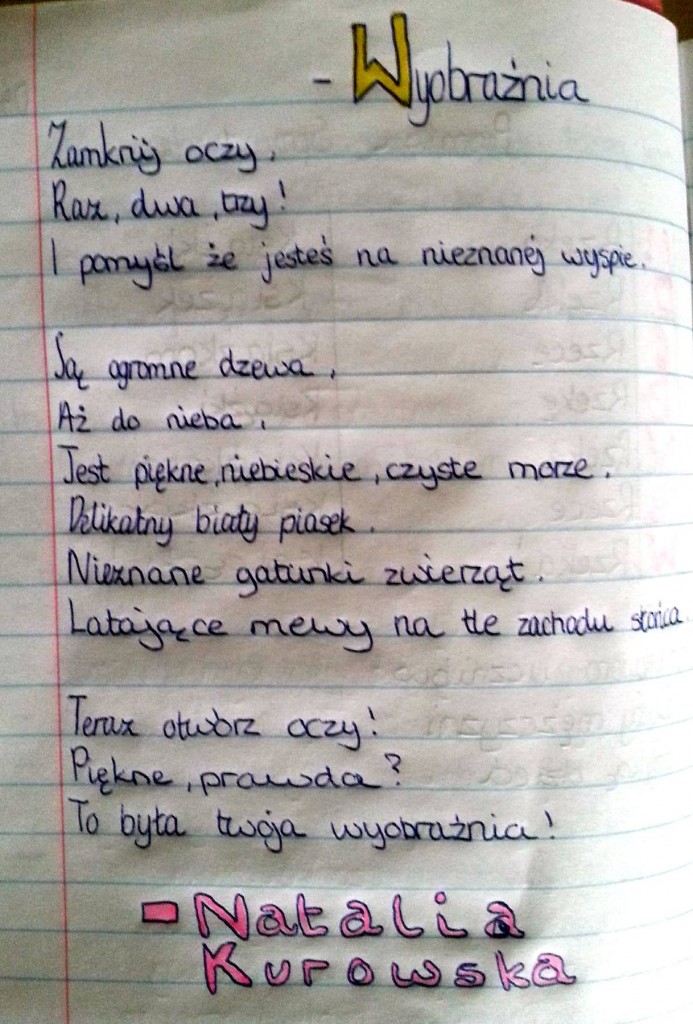 - Wyobraźnia
Zamknij oczy,
Raz, dwa, trzy!
I pomyśl że jesteś na nieznanej wyspie.
Są ogromne dzewa,
Aż do nieba,
Jest piękne, niebieskie, czyste morze.
Delikatny biały piasek.
Nieznane gatunki zwierząt.
Latające mewy na tle zachodu słońca.
Teraz otwórz oczy!
Piękne, prawda?
To była twoja wyobraźnia!
- Natalia
Kurowska